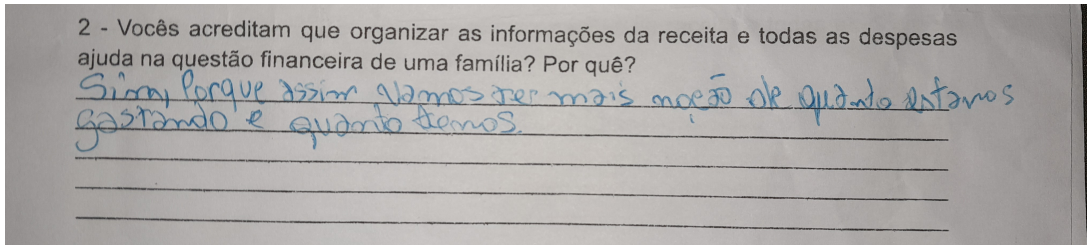 2 - Vocês acreditam que organizar as informações da receita e todas as despesas
ajuda na questão financeira de uma família? Por quê?
Sim, Porque assim Vamos ter mais noção de quanto estamos
gastando e quanto temos.